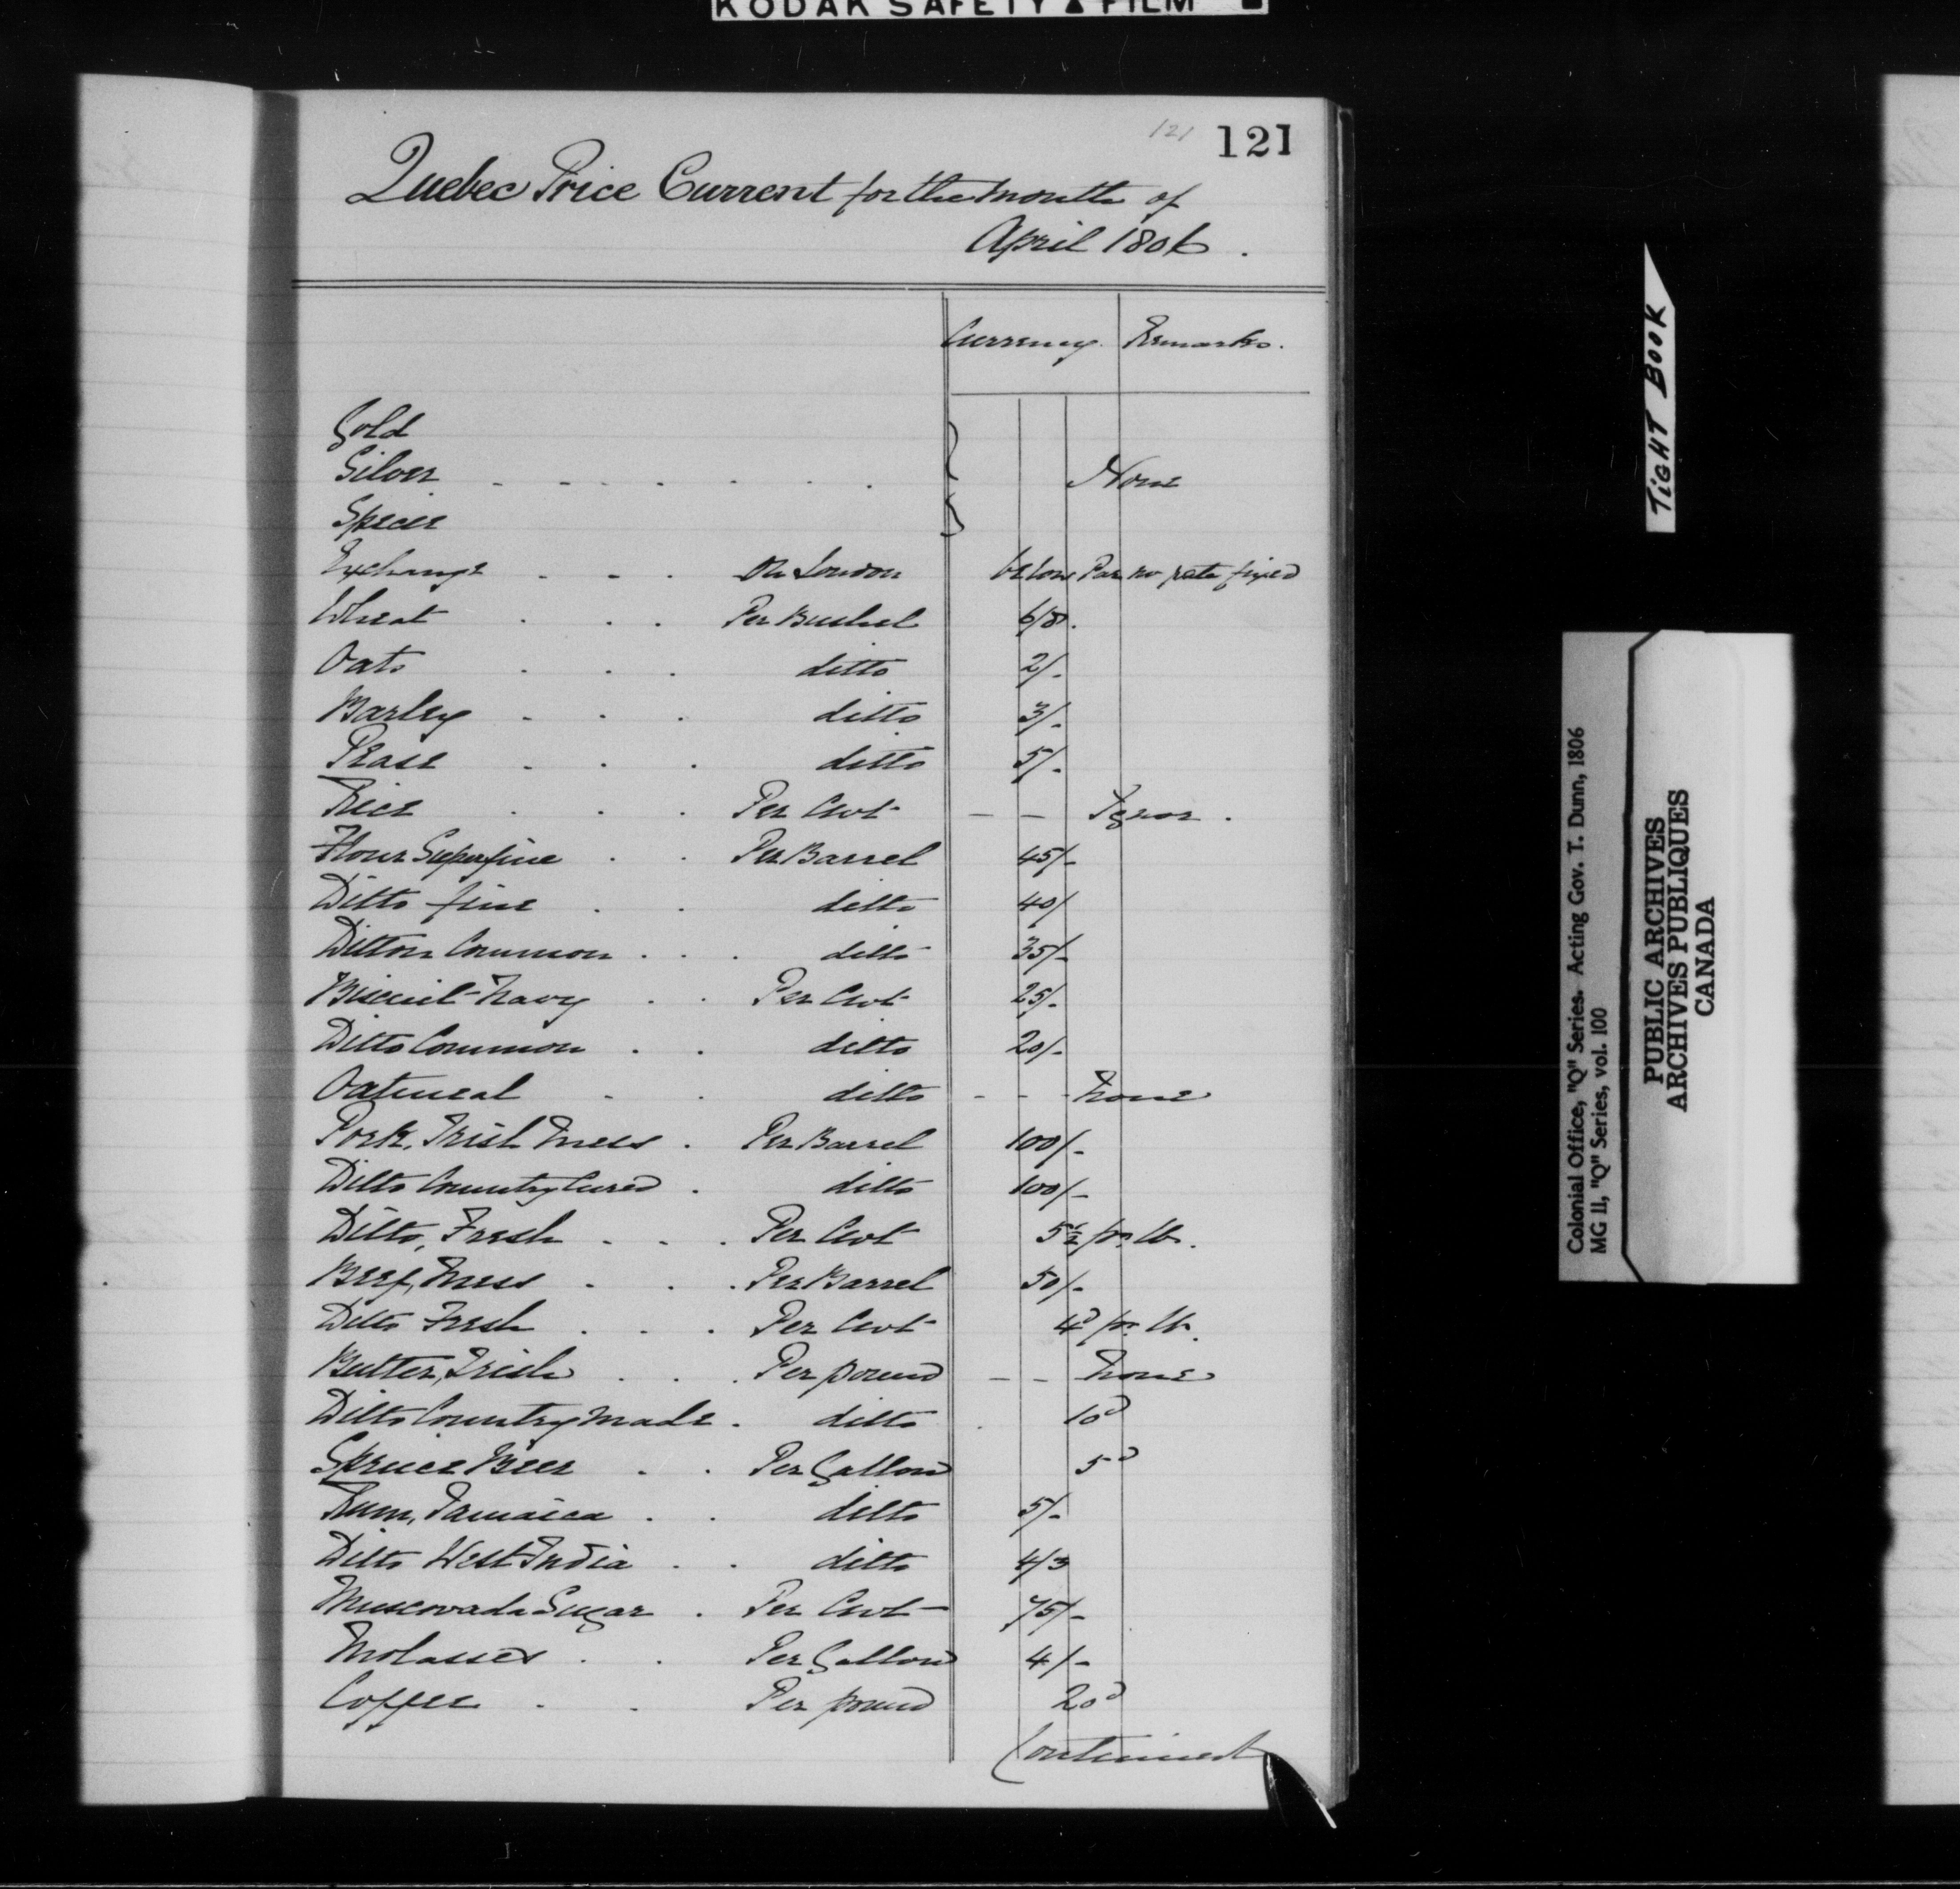 KODAK SAFETY ▲ FILM
121 121
Quebec Price Current for the month of
April 1806.
Currency. Remarks.
Gold
Silver - - - - - - None
Specie
Exchange - - - On London below Par no rate fixed
Wheat . . . Per Bushel 6/8.
Oats . . . ditto 2/-
Barley . . . ditto 3/-
Pease . . . ditto 5/-
Rice . . . Per Cwt - -
Flour Superfine . . Per Barrel 45/-
Ditto fine . . ditto 40/
Ditto Common . . . ditto 35/-
Biscuit Navy . . Per Cwt 25/-
Ditto Common . . ditto 20/-
Oatmeal . . ditto - - - None
Pork, Irish Mess . Per Barrel 100/-
Ditto Country Cured . ditto 100/-
Ditto, Fresh . . . Per Cwt 5½ pr. lb.
Beef, Mess . . . Per Barrel 50/-
Ditto Fresh . . . Per Cwt 4d pr. lb.
Butter, Irish . . . Per pound - - None
Ditto Country made . ditto . 10d
Spruce Beer . . Per Gallon 5d
Rum, Jamaica . . ditto 5/-
Ditto West India . . ditto 4/3
Muscovada Sugar . Per Cwt 75/-
Molasses . . Per Gallon 4/-
Coffee . . Per pound 20d
Continued
TIGHT BOOK
Colonial Office, "Q" Series. Acting Gov. T. Dunn, 1806
MG 11, "Q" Series, vol. 100
PUBLIC ARCHIVES
ARCHIVES PUBLIQUES
CANADA